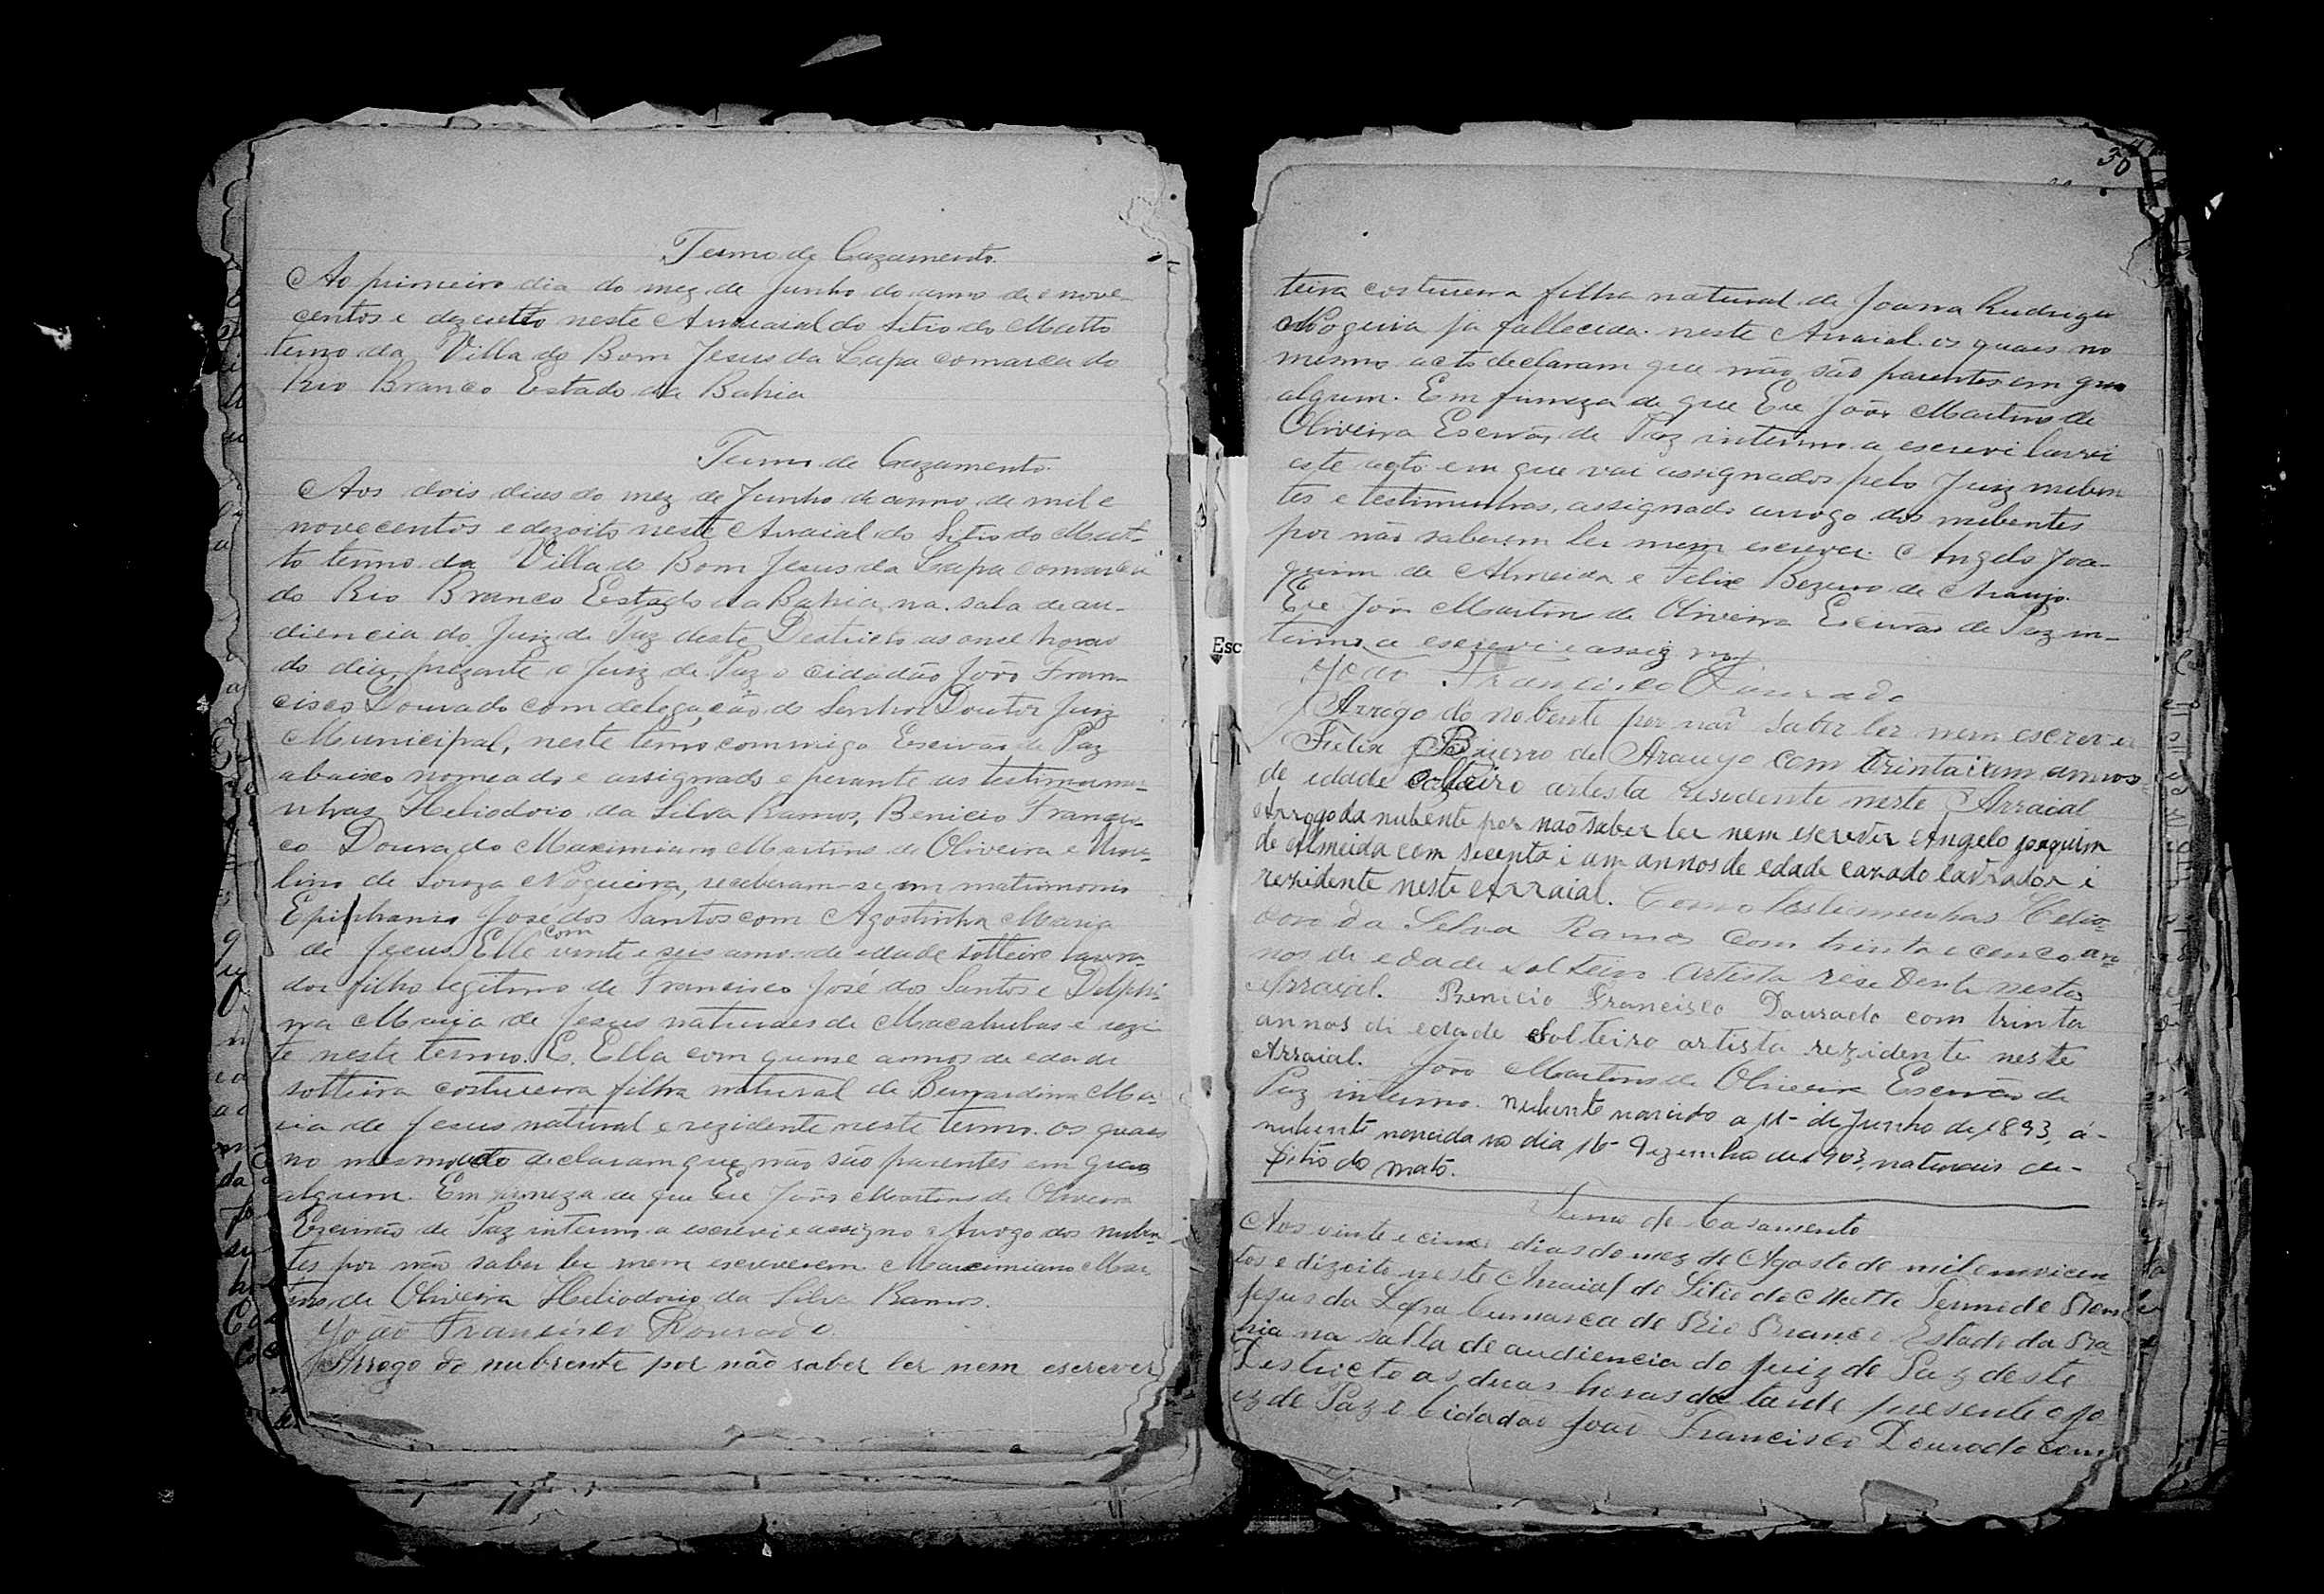 Termo de Cazamento.
Ao primeiro dia do mez de Junho do anno de e nove-
centos e dezoitto neste Arraiaal do Sitio do Matto
termo da Villa do Bom Jesus da Lapa comarca do
Rio Branco Estado da Bahia
Termo de Cazamento.
Aos dois dias do mez de Junho do anno de mil e
novecentos e dezoito neste Arraial do Sitio do Mat-
to termo da Villa do Bom Jesus da Lapa comarca
do Rio Branco Estado da Bahia, na sala de au-
diencia do Juiz de Paz deste Destricto as onse horas
do dia, prezente o Juiz de Paz o cidadão João Fran-
cisco Dourado com delegação do Senhor Doutor Juiz
Municipal, neste termo commigo Escrivão de Paz
abaixo nomeado e assignado e perante as testimun-
nhas Heliodorio da Silva Ramos, Benicio Francis-
co Dourado Maximiano Martins de Oliveira e
lino de Souza Nogueira, receberam-se em matrimonio
Epiphanio José dos Santos com Agostinha Maria
de Jesus, Elle com vinte e seis annos de edade solteiro lavra-
dor filho legitimo de Francisco José dos Santos e Delphi-
na Maria de Jesus naturaes de Macahubas e rezi
te neste termo. E. Ella com quinse annos de edade
solteira costureira filha natural de Bernardina Ma-
ria de Jesus natural e rezidente neste termo. os quaes
no mesmo acto declaram que não são parentes em grao
algum. Em firmeza de que Eu João Martins de Oliveira
Escrivão de Paz interino a escrevi e assigno Arrogo dos nuben-
tes por não saber ler nem escreverem Maximiano Mar-
tins de Oliveira Heliodorio da Silva Ramos.
João Francisco Dourado
Arrogo do nubrente por não saber ler nem escrever
30
teira costureira filha natural de Joanna Rudrigu
Nogueira ja fallecida neste Arraial. os quaes no
mesmo acto declaram que não são parentes em grao
algum. Em firmeza de que Eu João Martins de
Oliveira Escrivão de Paz interino a escrevi lavrei
este acto em que vai assignados pelo Juiz nuben
tes e testimunhas, assignado arrogo dos nubentes
por não saberem ler nem escrever. Angelo Joa-
quim de Almeida e Felix Bezerro de Araujo.
Eu João Martins de Oliveira Escrivão de Paz in-
terino a escrevi e assig no
João Francisco Dourado
Arrogo do nobente por não saber ler nem escrever
Felix Bizerro de Araujo com trinta i um annos
de edade solteiro artista residente neste Arraial
Arrogo da nubente por não saber ler nem escrever Angelo joaquim
de Almeida com secenta i um annos de edade cazado lavrador i
rezidente neste Arraial. Como testimunhas Helio-
doro da Selva Ramos com trinta e cenco an-
nos di edade solteiro artista residente neste
Arraial. Benicio Francisco Dourado com trinta
annos di edade solteiro artista rezidente neste
Arraial. João Martins de Oliveira Escrivão de
Paz interino. nubente nascido a 11 de Junho de 1893, á-
nubente nascida no dia 16 Dezembro de 1903, naturais de-
Sitio do mato.
Termo de Casamento
Aos vinte e cinco dias do mez de Agosto de mil e novicen
tos e dizoito neste Arraial do Sitio do Matto Termo de Bom
Jesus da Lapa Comarca de Rio Branco Estado da Ba-
hia na salla de audiencia do Juiz de Paz deste
Destricto as duas horas da tarde presente o Jo
iz de Paz o Cidadão João Francisco Dourado com